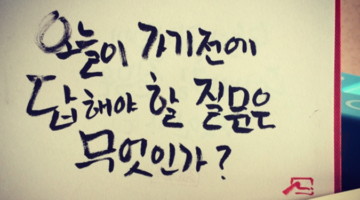 오늘이 가기전에
답해야 할 질문은
무엇인가?